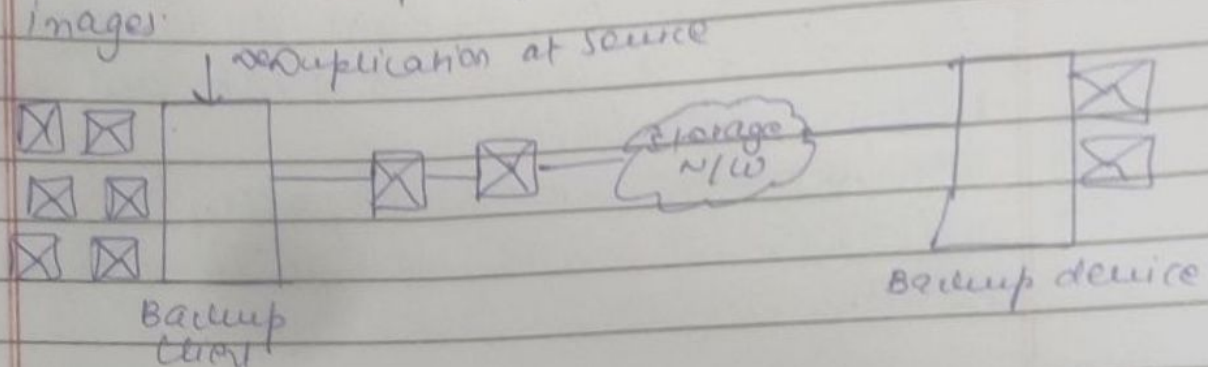 images.
Deduplication at source
storage
N/W
Backup device
Backup
Client